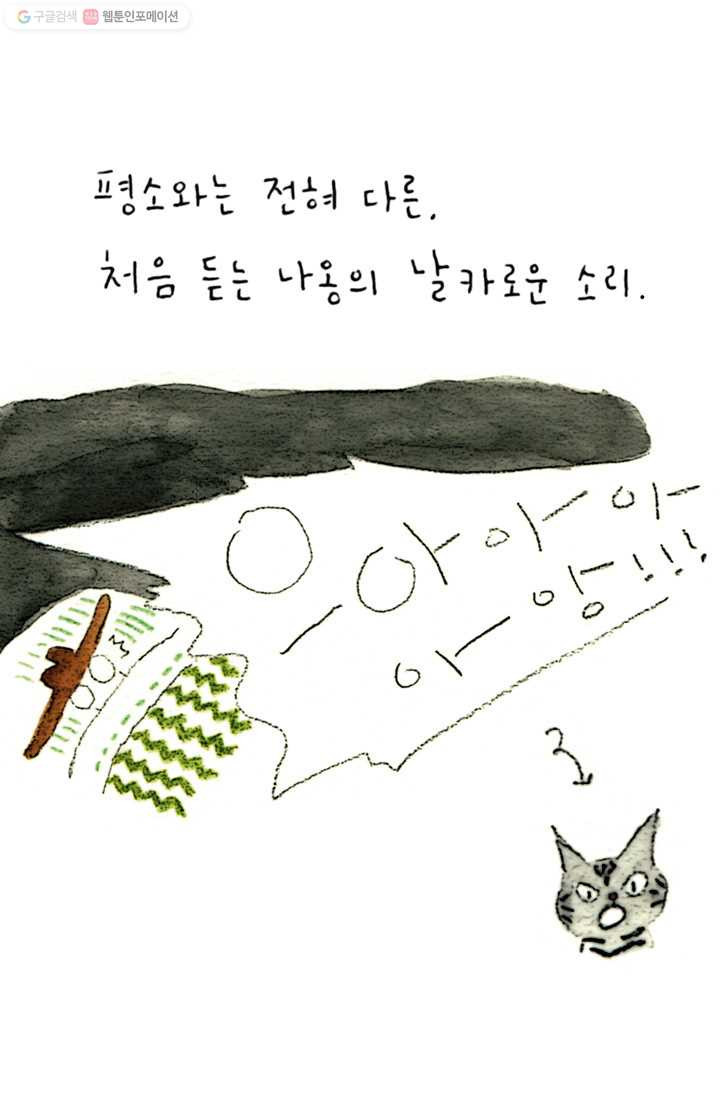 구글검색 웹툰인포메이션
평소와는 전혀 다른.
처음 듣는 나옹의 날카로운 소리.
으아아아
아앙!!!